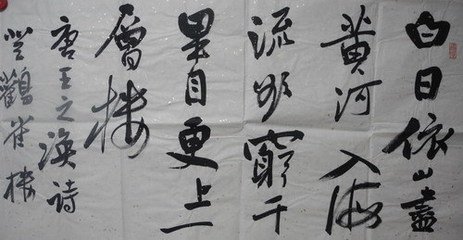 白日依山盡
黄河入海
流欲窮千
里目更上一
層樓
唐王之渙詩
登鸛雀樓